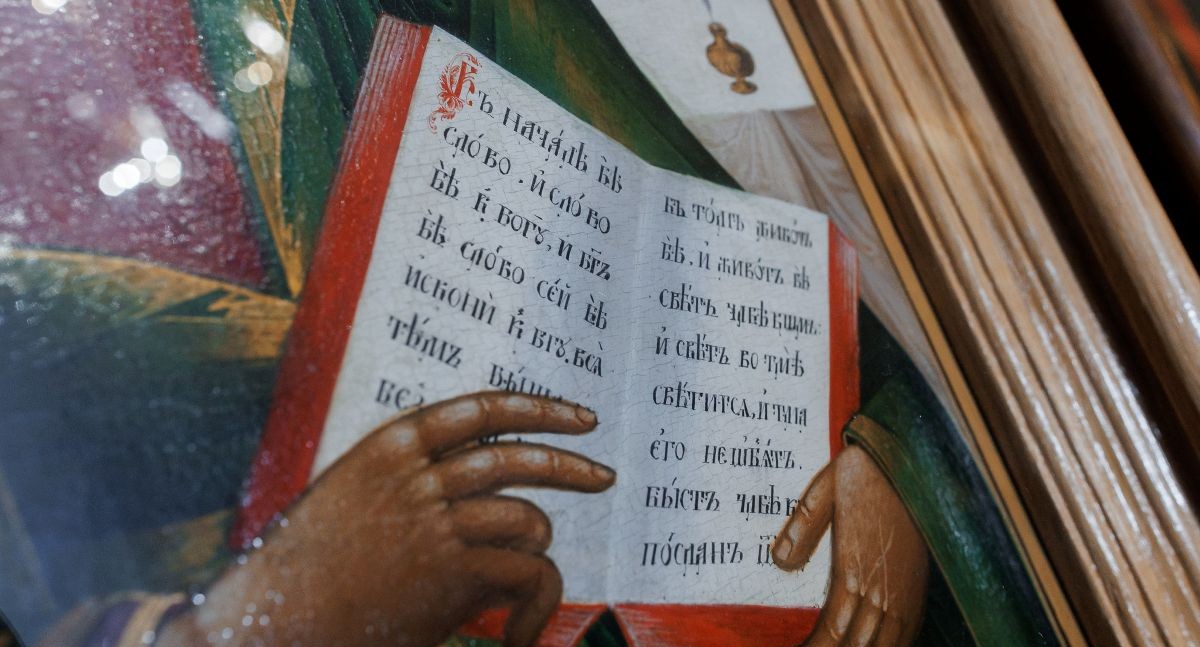 Въ нача́лѣ бѣ̀
сло́во . и҆ сло́во
бѣ̀ к̾ богꙋ̀, и҆ бг҃ъ
бѣ̀ сло́во се́й бѣ̀
и҆скони̾ к̾ бг҃ꙋ. всѧ̀
тѣ́мъ бы́ша
въ то́мъ живо́тъ
бѣ̀ . и҆ живо́тъ бѣ̀
свѣ́тъ члвѣкщмъ:
и҆ свѣ́тъ во тмѣ̀
свѣ́титсѧ, и҆ тма̀
є҆гѡ̀ не ѡ҆б̾ѧ́тъ.
бы́сть члвѣкъ
по́сланъ